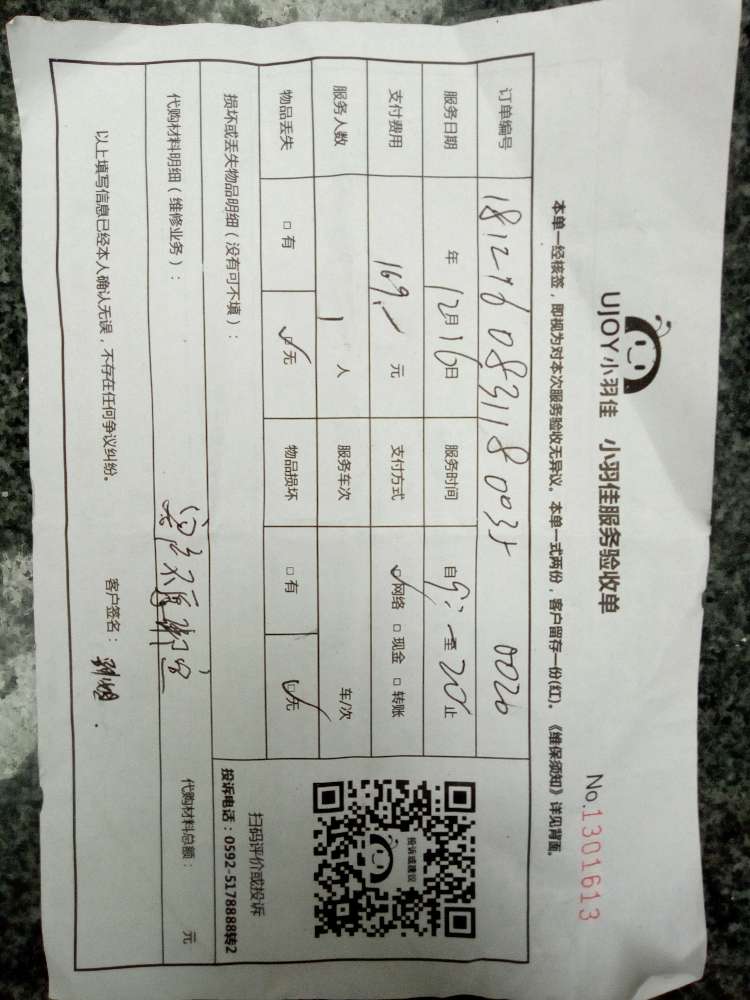 UJOY小羽佳 小羽佳服务验收单
No.1301613
本单一经核签，即视为对本次服务验收无异议。本单一式两份，客户留存一份(红)。《维保须知》详见背面。
订单编号 1812160831180035 0020
服务日期 年12月16日 服务时间 自9:-至 止
支付费用 169.- 元 支付方式 ☑网络 □现金 □转账
服务人数 1 人 服务车次 车/次
物品丢失 □有 ☑无 物品损坏 □有 ☑无
损坏或丢失物品明细（没有可不填）：
代购材料明细（维修业务）： 代购材料总额： 元
以上填写信息已经本人确认无误，不存在任何争议纠纷。 客户签名：
投诉或建议
扫码评价或投诉
投诉电话：0592-5178888转2